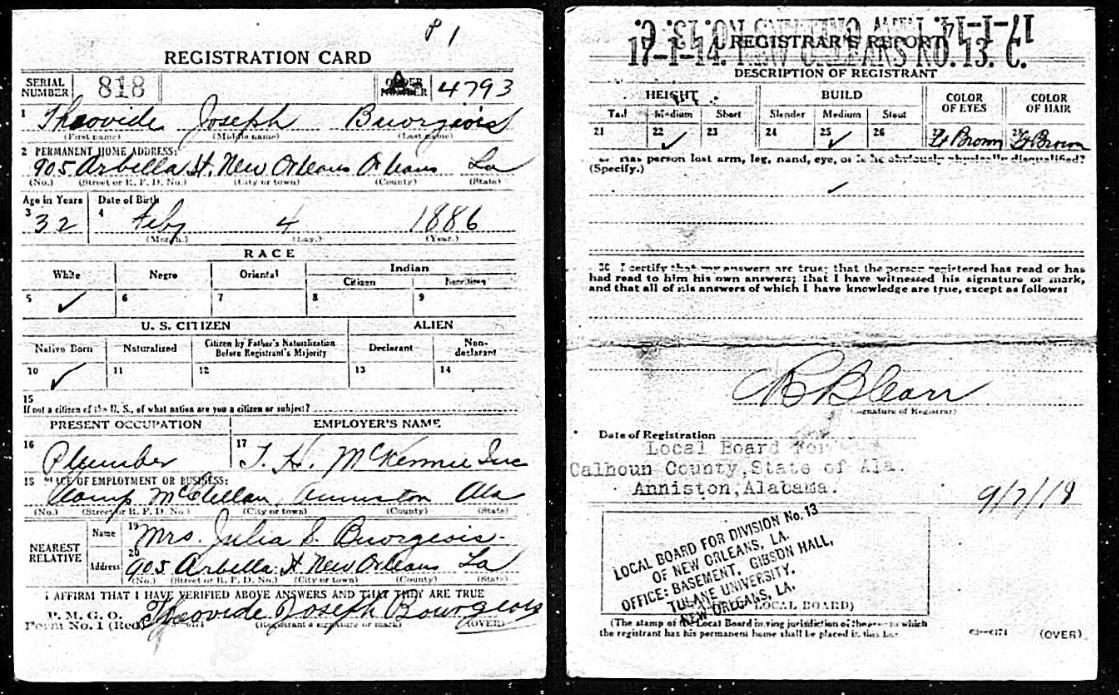 8 1
REGISTRATION CARD
SERIAL NUMBER 818 ORDER NUMBER A 4793
1 Theovide Joseph Buorgeois
(First name) (Middle name) (Last name)
2 PERMANENT HOME ADDRESS:
905 Arbella St. New Orleans Orleans La
(No.) (Street or R. F. D. No.) (City or town) (County) (State)
Age in Years Date of Birth
3 32 4 Feby 4 1886
(Month.) (Day.) (Year.)
RACE
White Negro Oriental Indian
Citizen Noncitizen
5 ✓ 6 7 8 9
U. S. CITIZEN ALIEN
Native Born Naturalized Citizen by Father's Naturalization Before Registrant's Majority Declarant Non-declarant
10 ✓ 11 12 13 14
15
If not a citizen of the U. S., of what nation are you a citizen or subject?
PRESENT OCCUPATION EMPLOYER'S NAME
16 Plumber 17 T. H. McKennie Inc
18 PLACE OF EMPLOYMENT OR BUSINESS:
Camp McClellan, Anniston Ala
(No.) (Street or R. F. D. No.) (City or town) (County) (State)
NEAREST RELATIVE Name 19 Mrs. Julia S. Buorgeois
Address 20 905 Arbella St New Orleans La
(No.) (Street or R. F. D. No.) (City or town) (County) (State)
I AFFIRM THAT I HAVE VERIFIED ABOVE ANSWERS AND THAT THEY ARE TRUE
P. M. G. O.
Form No. 1 (Red) Theovide Joseph Bourgeois
(Registrant's signature or mark) (OVER)
17-1-14. NEW ORLEANS NO. 13. C.
REGISTRAR'S REPORT
17-1-14. NEW ORLEANS NO. 13. C.
DESCRIPTION OF REGISTRANT
HEIGHT BUILD COLOR OF EYES COLOR OF HAIR
Tall Medium Short Slender Medium Stout
21 22 ✓ 23 24 25 ✓ 26 27 Lt Brown 28 Lt Brown
29 Has person lost arm, leg, hand, eye, or is he obviously physically disqualified?
(Specify.)
✓
30 I certify that my answers are true; that the person registered has read or has
had read to him his own answers; that I have witnessed his signature or mark,
and that all of his answers of which I have knowledge are true, except as follows:
(Signature of Registrar)
Date of Registration
Local Board For
Calhoun County, State of Ala.
Anniston, Alabama.
9/7/18
LOCAL BOARD FOR DIVISION No. 13
OF NEW ORLEANS, LA.
OFFICE: BASEMENT, GIBSON HALL,
TULANE UNIVERSITY.
NEW ORLEANS, LA.
LOCAL BOARD)
(The stamp of the Local Board having jurisdiction of the area in which
the registrant has his permanent home shall be placed in this box.)
(OVER)